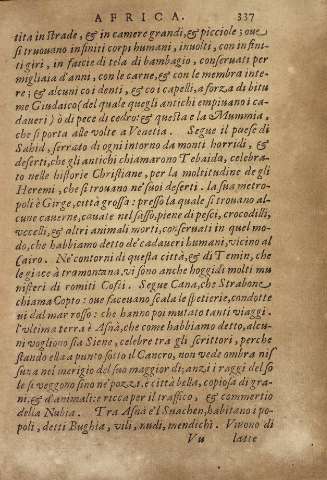 AFRICA. 337
tita in strade, & in camere grandi, & picciole: oue
si truouano infiniti corpi humani, inuolti, con infini-
ti giri, in fascie di tela di bambagio, conseruati per
migliaia d'anni, con le carne, & con le membra inte-
re; & alcuni coi denti, & coi capelli, a forza di bitu
me Giudaico (del quale quegli antichi empiuano i ca-
daueri) ò di pece di cedro: & questa e la Mummia,
che si porta alle volte a Venetia. Segue il paese di
Sahid, serrato di ogni intorno da monti horridi, &
deserti, che gli antichi chiamarono Tebaida, celebra-
to nelle historie Christiane, per la moltitudine de gli
Heremi, che si trouano ne' suoi deserti. la sua metro-
poli è Girge, città grossa: presso la quale si trouano al-
cune cauerne, cauate nel sasso, piene di pesci, crocodilli,
vccelli, & altri animali morti, conseruati in quel mo-
do, che habbiamo detto de' cadaueri humani, vicino al
Cairo. Ne' contorni di questa città, & di Temin, che
le giace à tramontana, vi sono anche hoggidì molti mu
nisteri di romiti Cofti. Segue Cana, che Strabone
chiama Copto: oue faceuano scala le spetierie, condotte
ui dal mar rosso: che hanno poi mutato tanti viaggi.
l'vltima terra è Asnà, che come habbiamo detto, alcu-
ni vogliono sia Siene, celebre tra gli scrittori, perche
stando ella a punto sotto il Cancro, non vede ombra nis
suna nel merigio del suo maggior dì; anzi i raggi del so
le si veggono sino ne' pozzi. è città bella, copiosa di gra-
ni, & d'animali: e ricca per il traffico, & commertio
della Nubia. Tra Asna e'l Suachen, habitano i po-
poli, detti Bughia, vili, nudi, mendichi. Viuono di
Vu latte